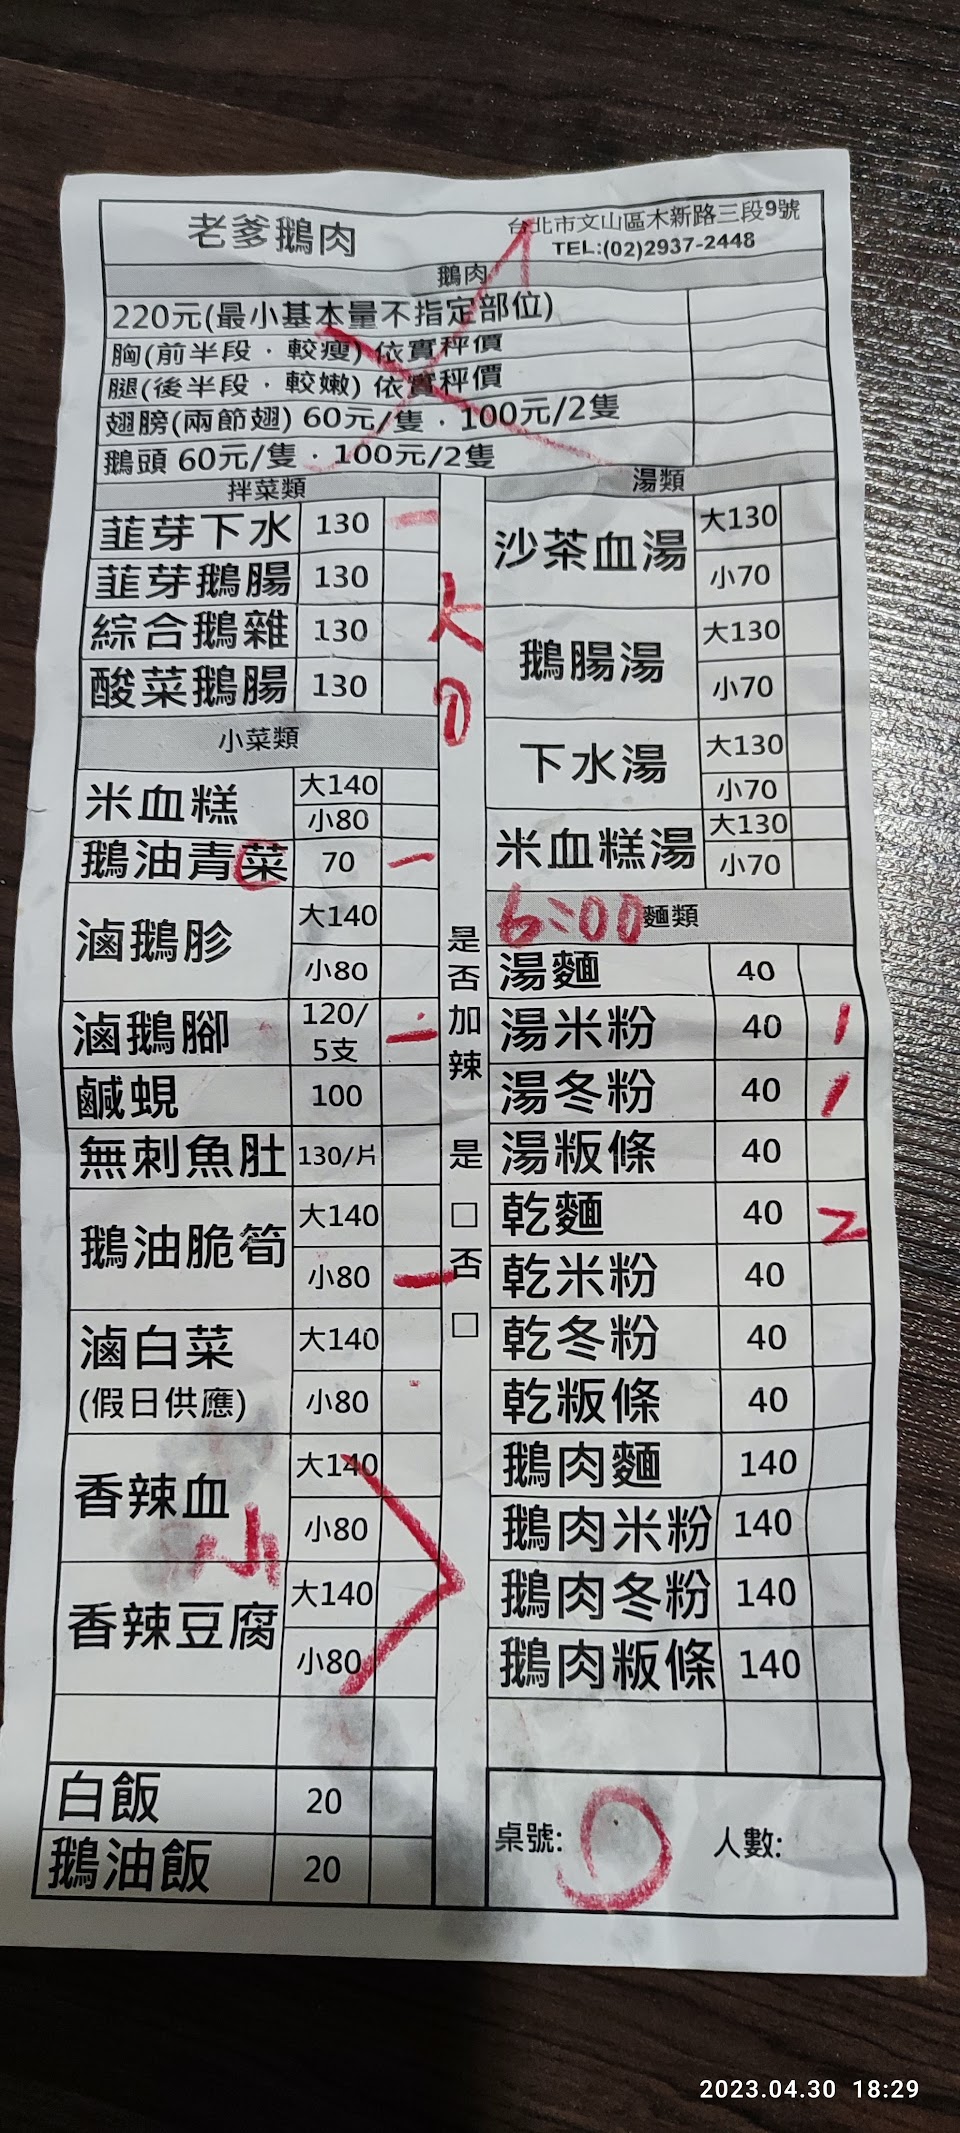 老爹鵝肉
台北市文山區木新路三段9號
TEL:(02)2937-2448
鵝肉
220元(最小基本量不指定部位)
胸(前半段．較瘦) 依實秤價
腿(後半段．較嫩) 依實秤價
翅膀(兩節翅) 60元/隻．100元/2隻
鵝頭 60元/隻．100元/2隻
拌菜類
韮芽下水 130 一
韮芽鵝腸 130
綜合鵝雜 130
酸菜鵝腸 130
小菜類
米血糕 大140
小80
鵝油青菜 70 一
滷鵝胗 大140
小80
滷鵝腳 120/
5支
鹹蜆 100
無刺魚肚 130/片
鵝油脆筍 大140
小80 一
滷白菜 大140
(假日供應) 小80
香辣血 大140
小80
小
香辣豆腐 大140
小80
白飯 20
鵝油飯 20
大
是否加辣
是 □
否 □
湯類
沙茶血湯 大130
小70
鵝腸湯 大130
小70
下水湯 大130
小70
米血糕湯 大130
小70
6:00 麵類
湯麵 40
湯米粉 40 1
湯冬粉 40 1
湯粄條 40
乾麵 40 2
乾米粉 40
乾冬粉 40
乾粄條 40
鵝肉麵 140
鵝肉米粉 140
鵝肉冬粉 140
鵝肉粄條 140
桌號:
人數:
2023.04.30 18:29